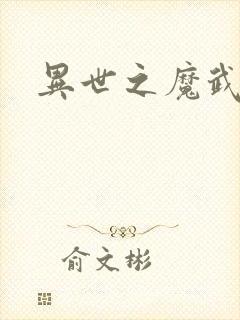 異世之魔武
俞文彬